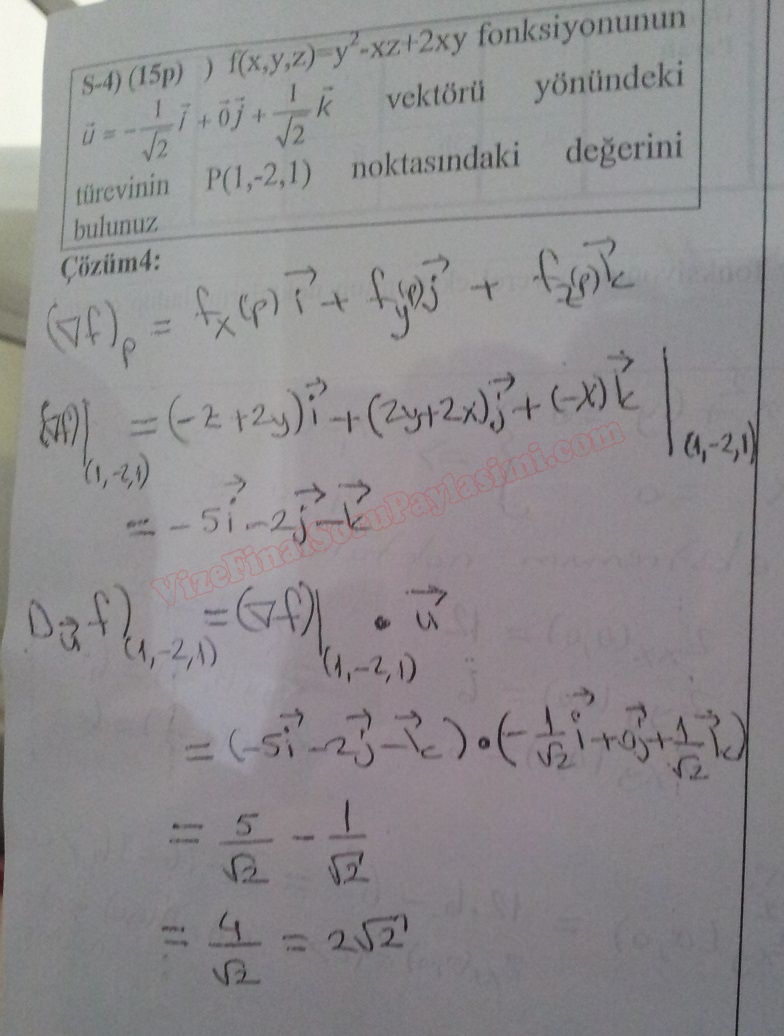 S-4) (15p) ) f(x,y,z)=y²-xz+2xy fonksiyonunun
u⃗ = -1/√2 i⃗ + 0⃗j⃗ + 1/√2 k⃗ vektörü yönündeki
türevinin P(1,-2,1) noktasındaki değerini
bulunuz
Çözüm4:
(∇f)_p = f_x(p) i⃗ + f_y(p) j⃗ + f_z(p) k⃗
(∇f)|_(1,-2,1) = (-z+2y) i⃗ + (2y+2x) j⃗ + (-x) k⃗ |_(1,-2,1)
= -5i⃗ -2j⃗ -k⃗
VizeFinalSoruPaylasimi.com
D_u⃗ f)_(1,-2,1) = (∇f)|_(1,-2,1) • u⃗
= (-5i⃗ -2j⃗ -k⃗) • (-1/√2 i⃗ + 0j⃗ + 1/√2 k⃗)
= 5/√2 - 1/√2
= 4/√2 = 2√2